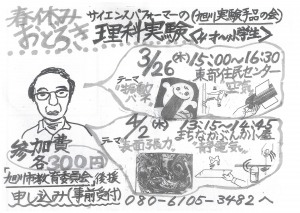 春休み
おどろき
サイエンスパフォーマーの(旭川実験手品の会)
理科実験
小学生
3/26(木)15:00〜16:30
東部住民センター
テーマ
空気
4/2(木)13:15〜14:45
まちなかぶんか小屋
テーマ
表面張力
静電気
参加費
各300円
旭川市教育委員会後援
申し込み(事前受付)
080-6105-3482へ